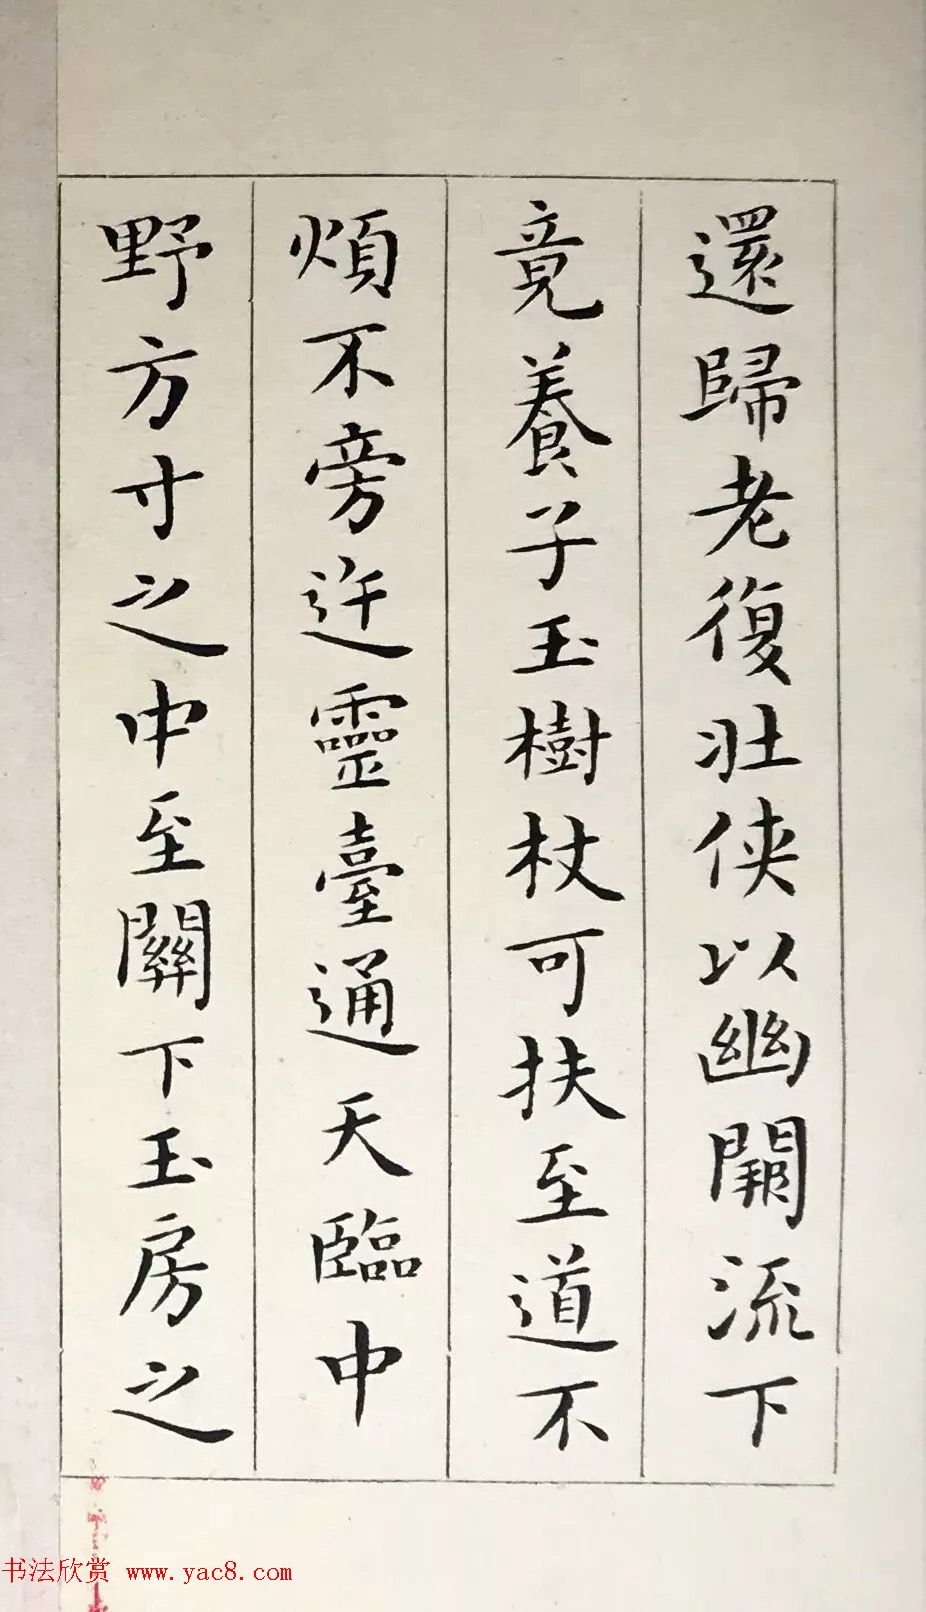 還歸老復壯俠以幽闕流下
竟養子玉樹杖可扶至道不
煩不旁迕靈臺通天臨中
野方寸之中至關下玉房之
书法欣赏 www.yac8.com